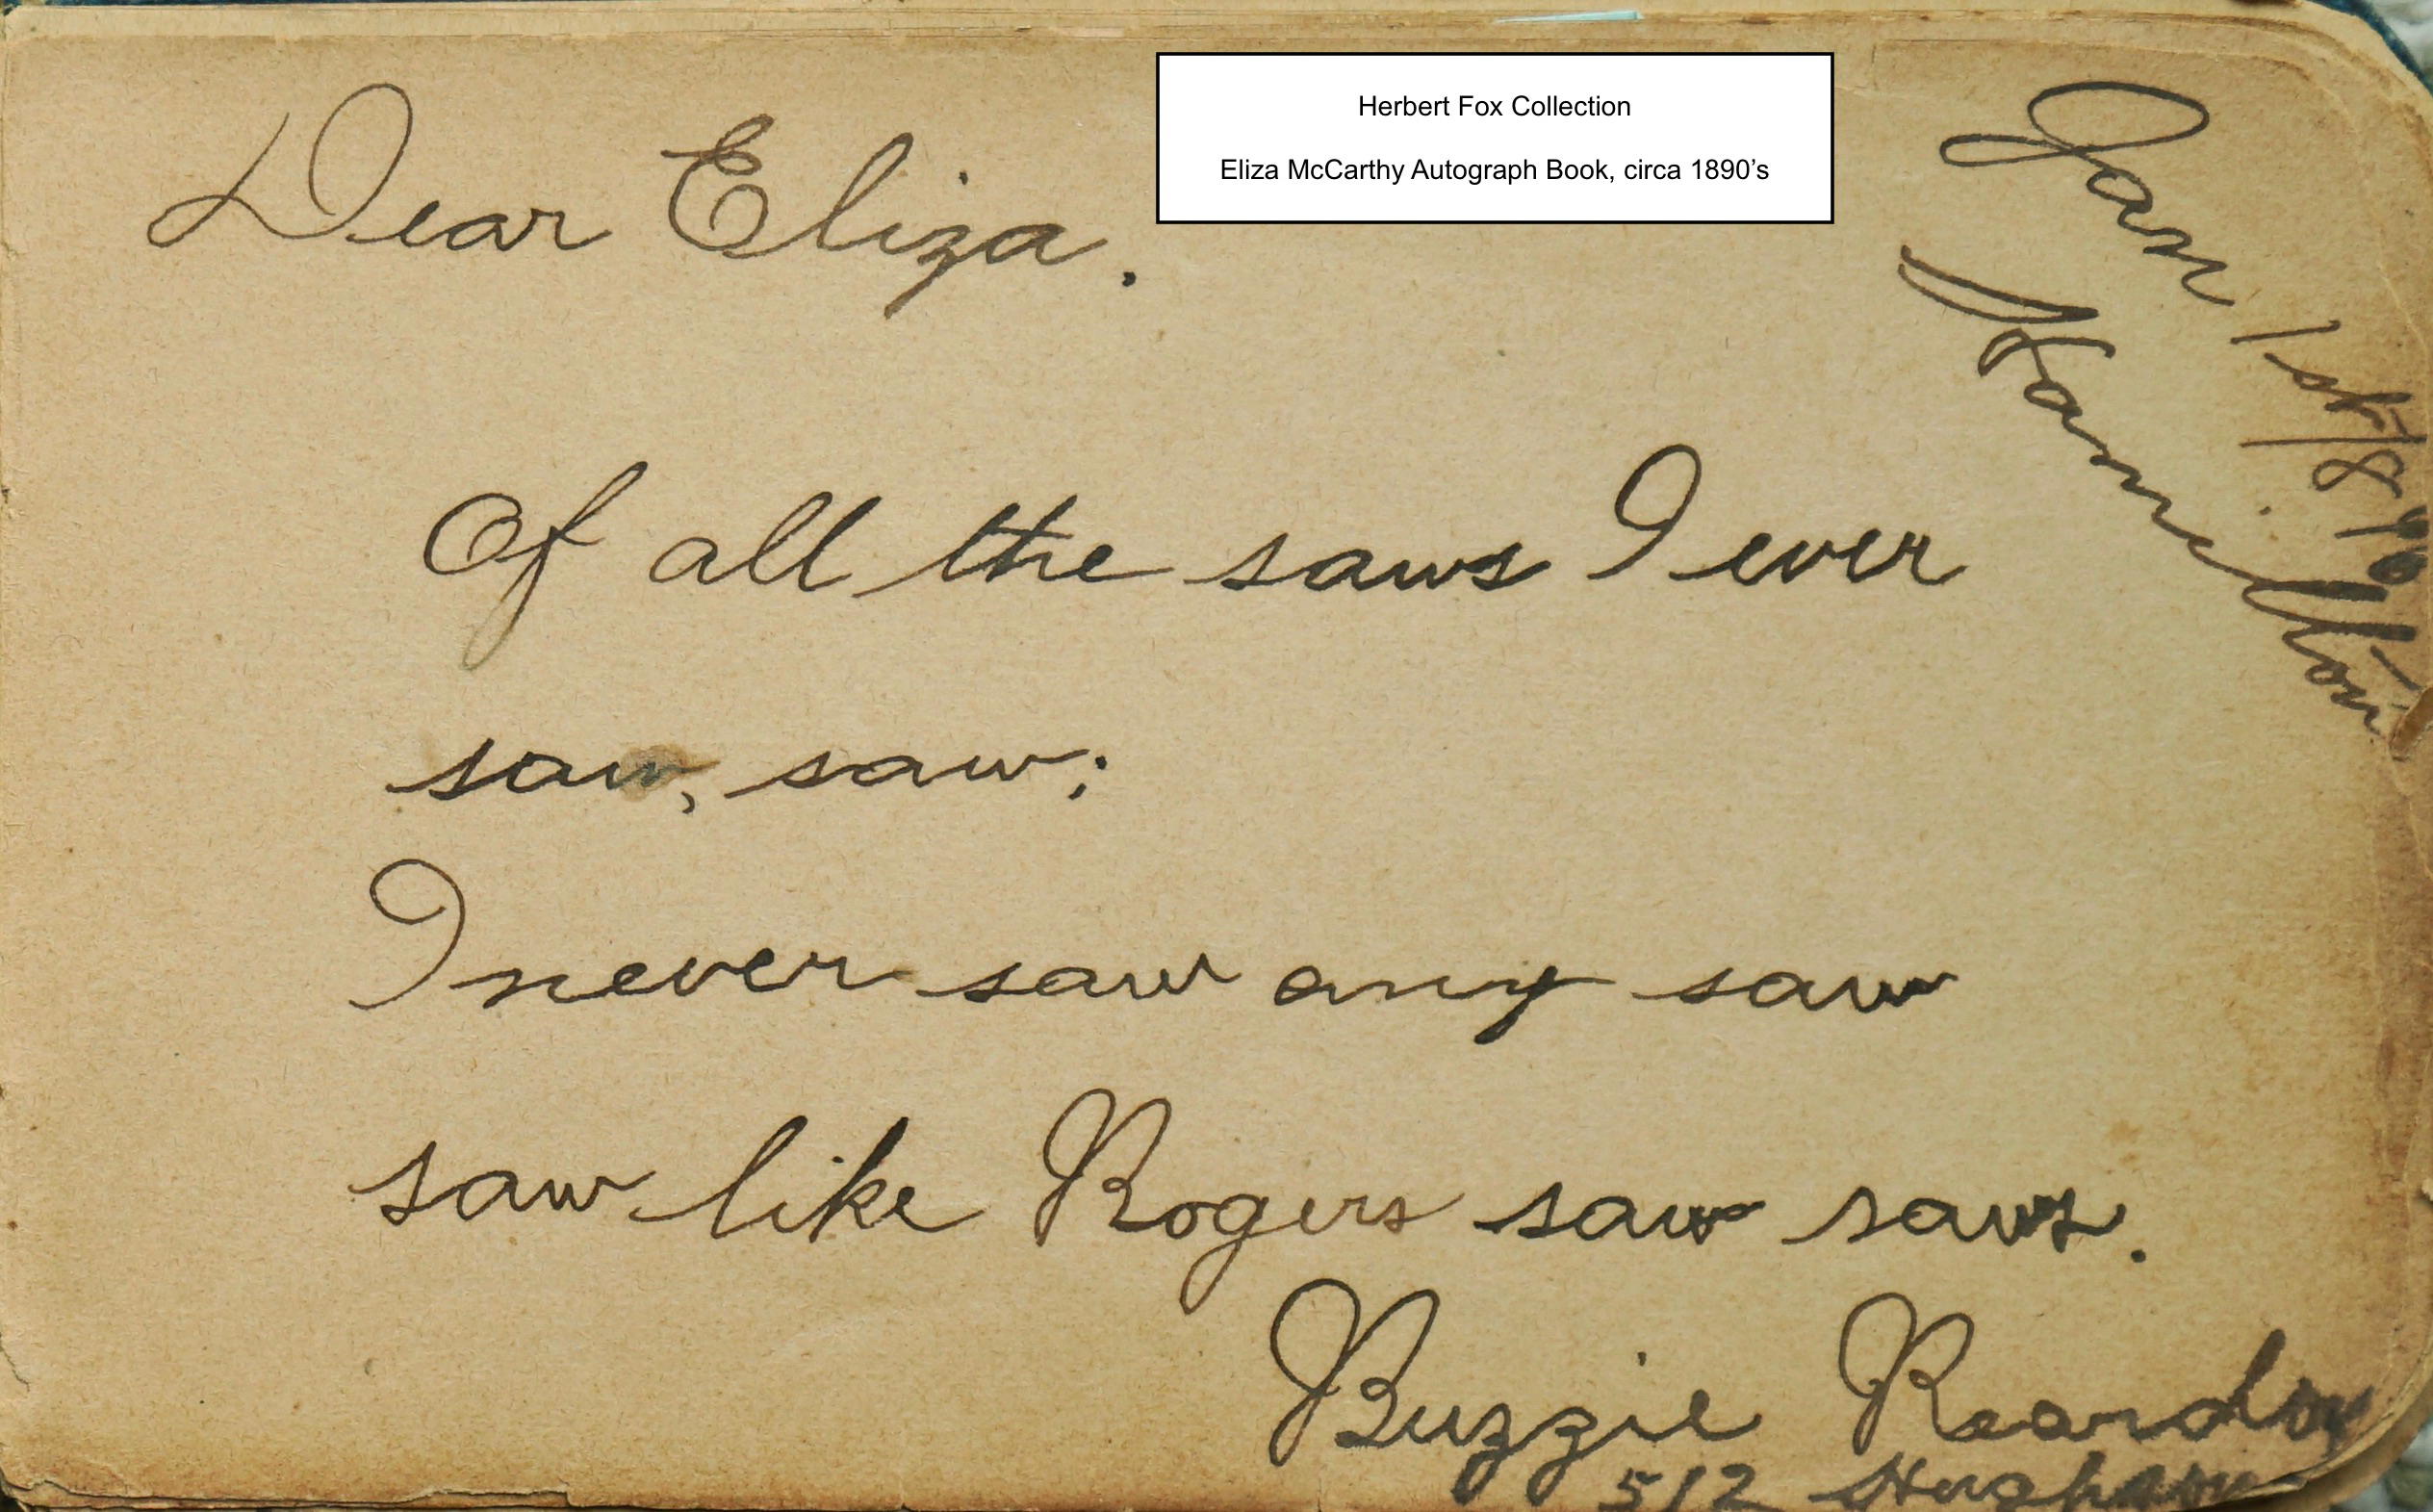 Herbert Fox Collection
Eliza McCarthy Autograph Book, circa 1890’s
Jan 1st/8
Hamilton
Dear Eliza.
Of all the saws I ever
saw, saw;
I never saw any saw
saw like Rogers saw saws.
Buzzie Reardon
512